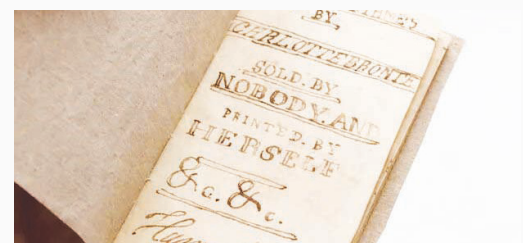 BY,
CHARLOTTE BRONTE
SOLD. BY
NOBODY. AND
PRINTED. BY
HERSELF
&c. &c.